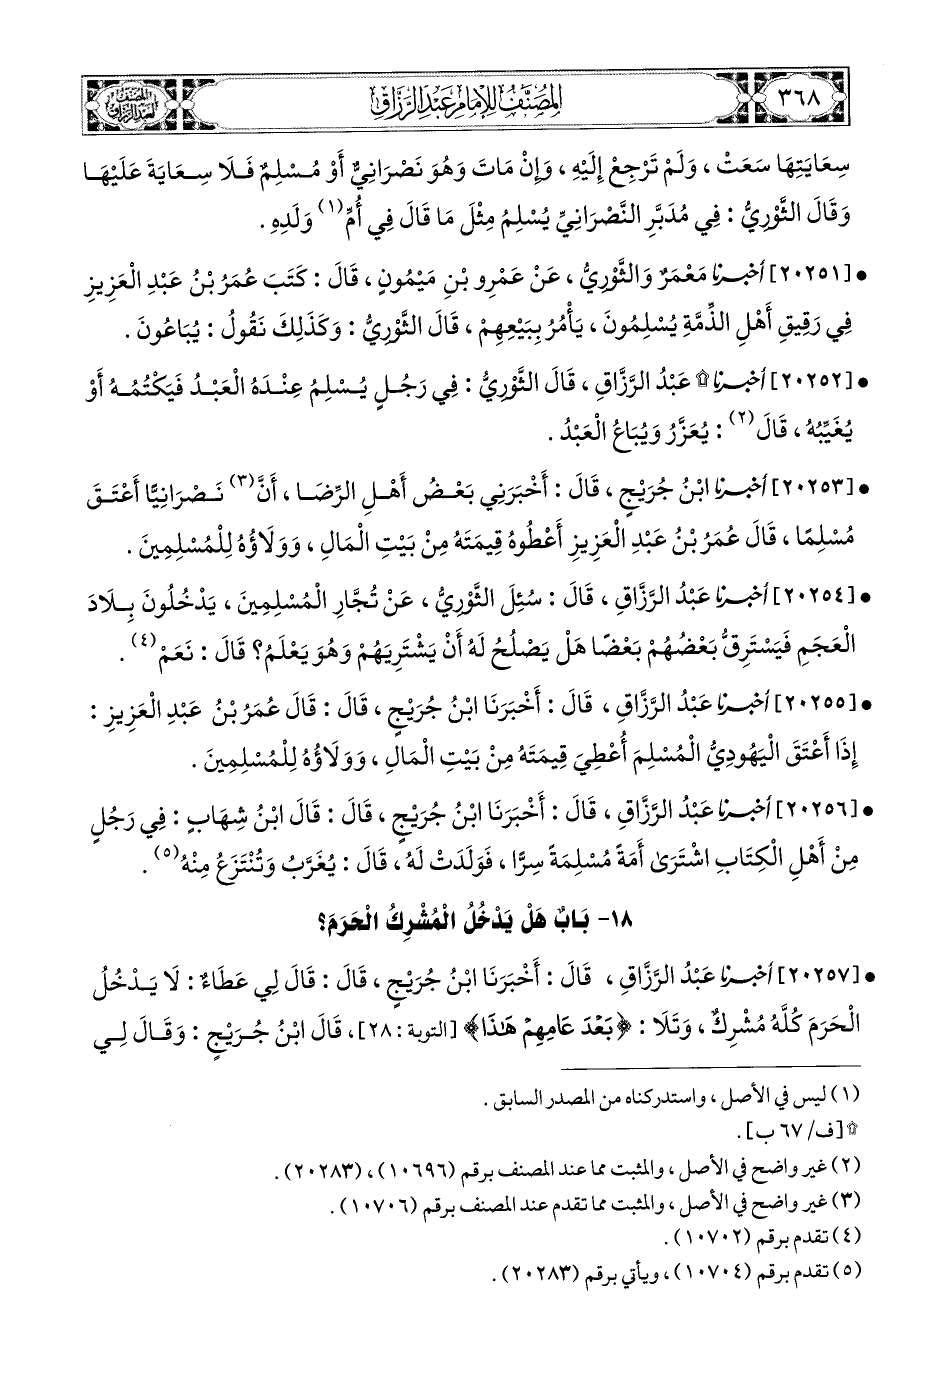 ٣٦٨
المصنف للإمام عبد الرزاق
المصنف
لعبد الرزاق
سِعَايَتِهَا سَعَتْ ، وَلَمْ تَرْجِعْ إِلَيْهِ ، وَإِنْ مَاتَ وَهُوَ نَصْرَانِيٌّ أَوْ مُسْلِمٌ فَلَا سِعَايَةَ عَلَيْهَا
وَقَالَ الثَّوْرِيُّ : فِي مُدَبَّرِ النَّصْرَانِيِّ يُسْلِمُ مِثْلَ مَا قَالَ فِي أُمِّ(١) وَلَدِهِ .
• [٢٠٢٥١] أخبرنا مَعْمَرٌ وَالثَّوْرِيُّ ، عَنْ عَمْرِو بْنِ مَيْمُونٍ ، قَالَ : كَتَبَ عُمَرُ بْنُ عَبْدِ الْعَزِيزِ
فِي رَقِيقِ أَهْلِ الذِّمَّةِ يُسْلِمُونَ ، يَأْمُرُ بِبَيْعِهِمْ ، قَالَ الثَّوْرِيُّ : وَكَذَلِكَ نَقُولُ : يُبَاعُونَ .
• [٢٠٢٥٢] أخبرنا ۩ عَبْدُ الرَّزَّاقِ ، قَالَ الثَّوْرِيُّ : فِي رَجُلٍ يُسْلِمُ عِنْدَهُ الْعَبْدُ فَيَكْتُمُهُ أَوْ
يُغَيِّبُهُ ، قَالَ(٢) : يُعَزَّرُ وَيُبَاعُ الْعَبْدُ .
• [٢٠٢٥٣] أخبرنا ابْنُ جُرَيْجٍ ، قَالَ : أَخْبَرَنِي بَعْضُ أَهْلِ الرِّضَا ، أَنَّ(٣) نَصْرَانِيًّا أَعْتَقَ
مُسْلِمًا ، قَالَ عُمَرُ بْنُ عَبْدِ الْعَزِيزِ أَعْطُوهُ قِيمَتَهُ مِنْ بَيْتِ الْمَالِ ، وَوَلَاؤُهُ لِلْمُسْلِمِينَ .
• [٢٠٢٥٤] أخبرنا عَبْدُ الرَّزَّاقِ ، قَالَ : سُئِلَ الثَّوْرِيُّ ، عَنْ تُجَّارِ الْمُسْلِمِينَ ، يَدْخُلُونَ بِلَادَ
الْعَجَمِ فَيَسْتَرِقُّ بَعْضُهُمْ بَعْضًا هَلْ يَصْلُحُ لَهُ أَنْ يَشْتَرِيَهُمْ وَهُوَ يَعْلَمُ؟ قَالَ : نَعَمْ(٤) .
• [٢٠٢٥٥] أخبرنا عَبْدُ الرَّزَّاقِ ، قَالَ : أَخْبَرَنَا ابْنُ جُرَيْجٍ ، قَالَ : قَالَ عُمَرُ بْنُ عَبْدِ الْعَزِيزِ :
إِذَا أَعْتَقَ الْيَهُودِيُّ الْمُسْلِمَ أُعْطِيَ قِيمَتَهُ مِنْ بَيْتِ الْمَالِ ، وَوَلَاؤُهُ لِلْمُسْلِمِينَ .
• [٢٠٢٥٦] أخبرنا عَبْدُ الرَّزَّاقِ ، قَالَ : أَخْبَرَنَا ابْنُ جُرَيْجٍ ، قَالَ : قَالَ ابْنُ شِهَابٍ : فِي رَجُلٍ
مِنْ أَهْلِ الْكِتَابِ اشْتَرَىٰ أَمَةً مُسْلِمَةً سِرًّا ، فَوَلَدَتْ لَهُ ، قَالَ : يُغَرَّبُ وَتُنْتَزَعُ مِنْهُ(٥) .
١٨- بَابٌ هَلْ يَدْخُلُ الْمُشْرِكُ الْحَرَمَ؟
• [٢٠٢٥٧] أخبرنا عَبْدُ الرَّزَّاقِ ، قَالَ : أَخْبَرَنَا ابْنُ جُرَيْجٍ ، قَالَ : قَالَ لِي عَطَاءٌ : لَا يَدْخُلُ
الْحَرَمَ كُلَّهُ مُشْرِكٌ ، وَتَلَا : ﴿بَعْدَ عَامِهِمْ هَٰذَا﴾ [التوبة : ٢٨]، قَالَ ابْنُ جُرَيْجٍ : وَقَالَ لِي
(١) ليس في الأصل ، واستدركناه من المصدر السابق .
۩ [ف/ ٦٧ ب].
(٢) غير واضح في الأصل ، والمثبت مما عند المصنف برقم (١٠٦٩٦)، (٢٠٢٨٣) .
(٣) غير واضح في الأصل ، والمثبت مما تقدم عند المصنف برقم (١٠٧٠٦) .
(٤) تقدم برقم (١٠٧٠٢) .
(٥) تقدم برقم (١٠٧٠٤) ، ويأتي برقم (٢٠٢٨٣) .